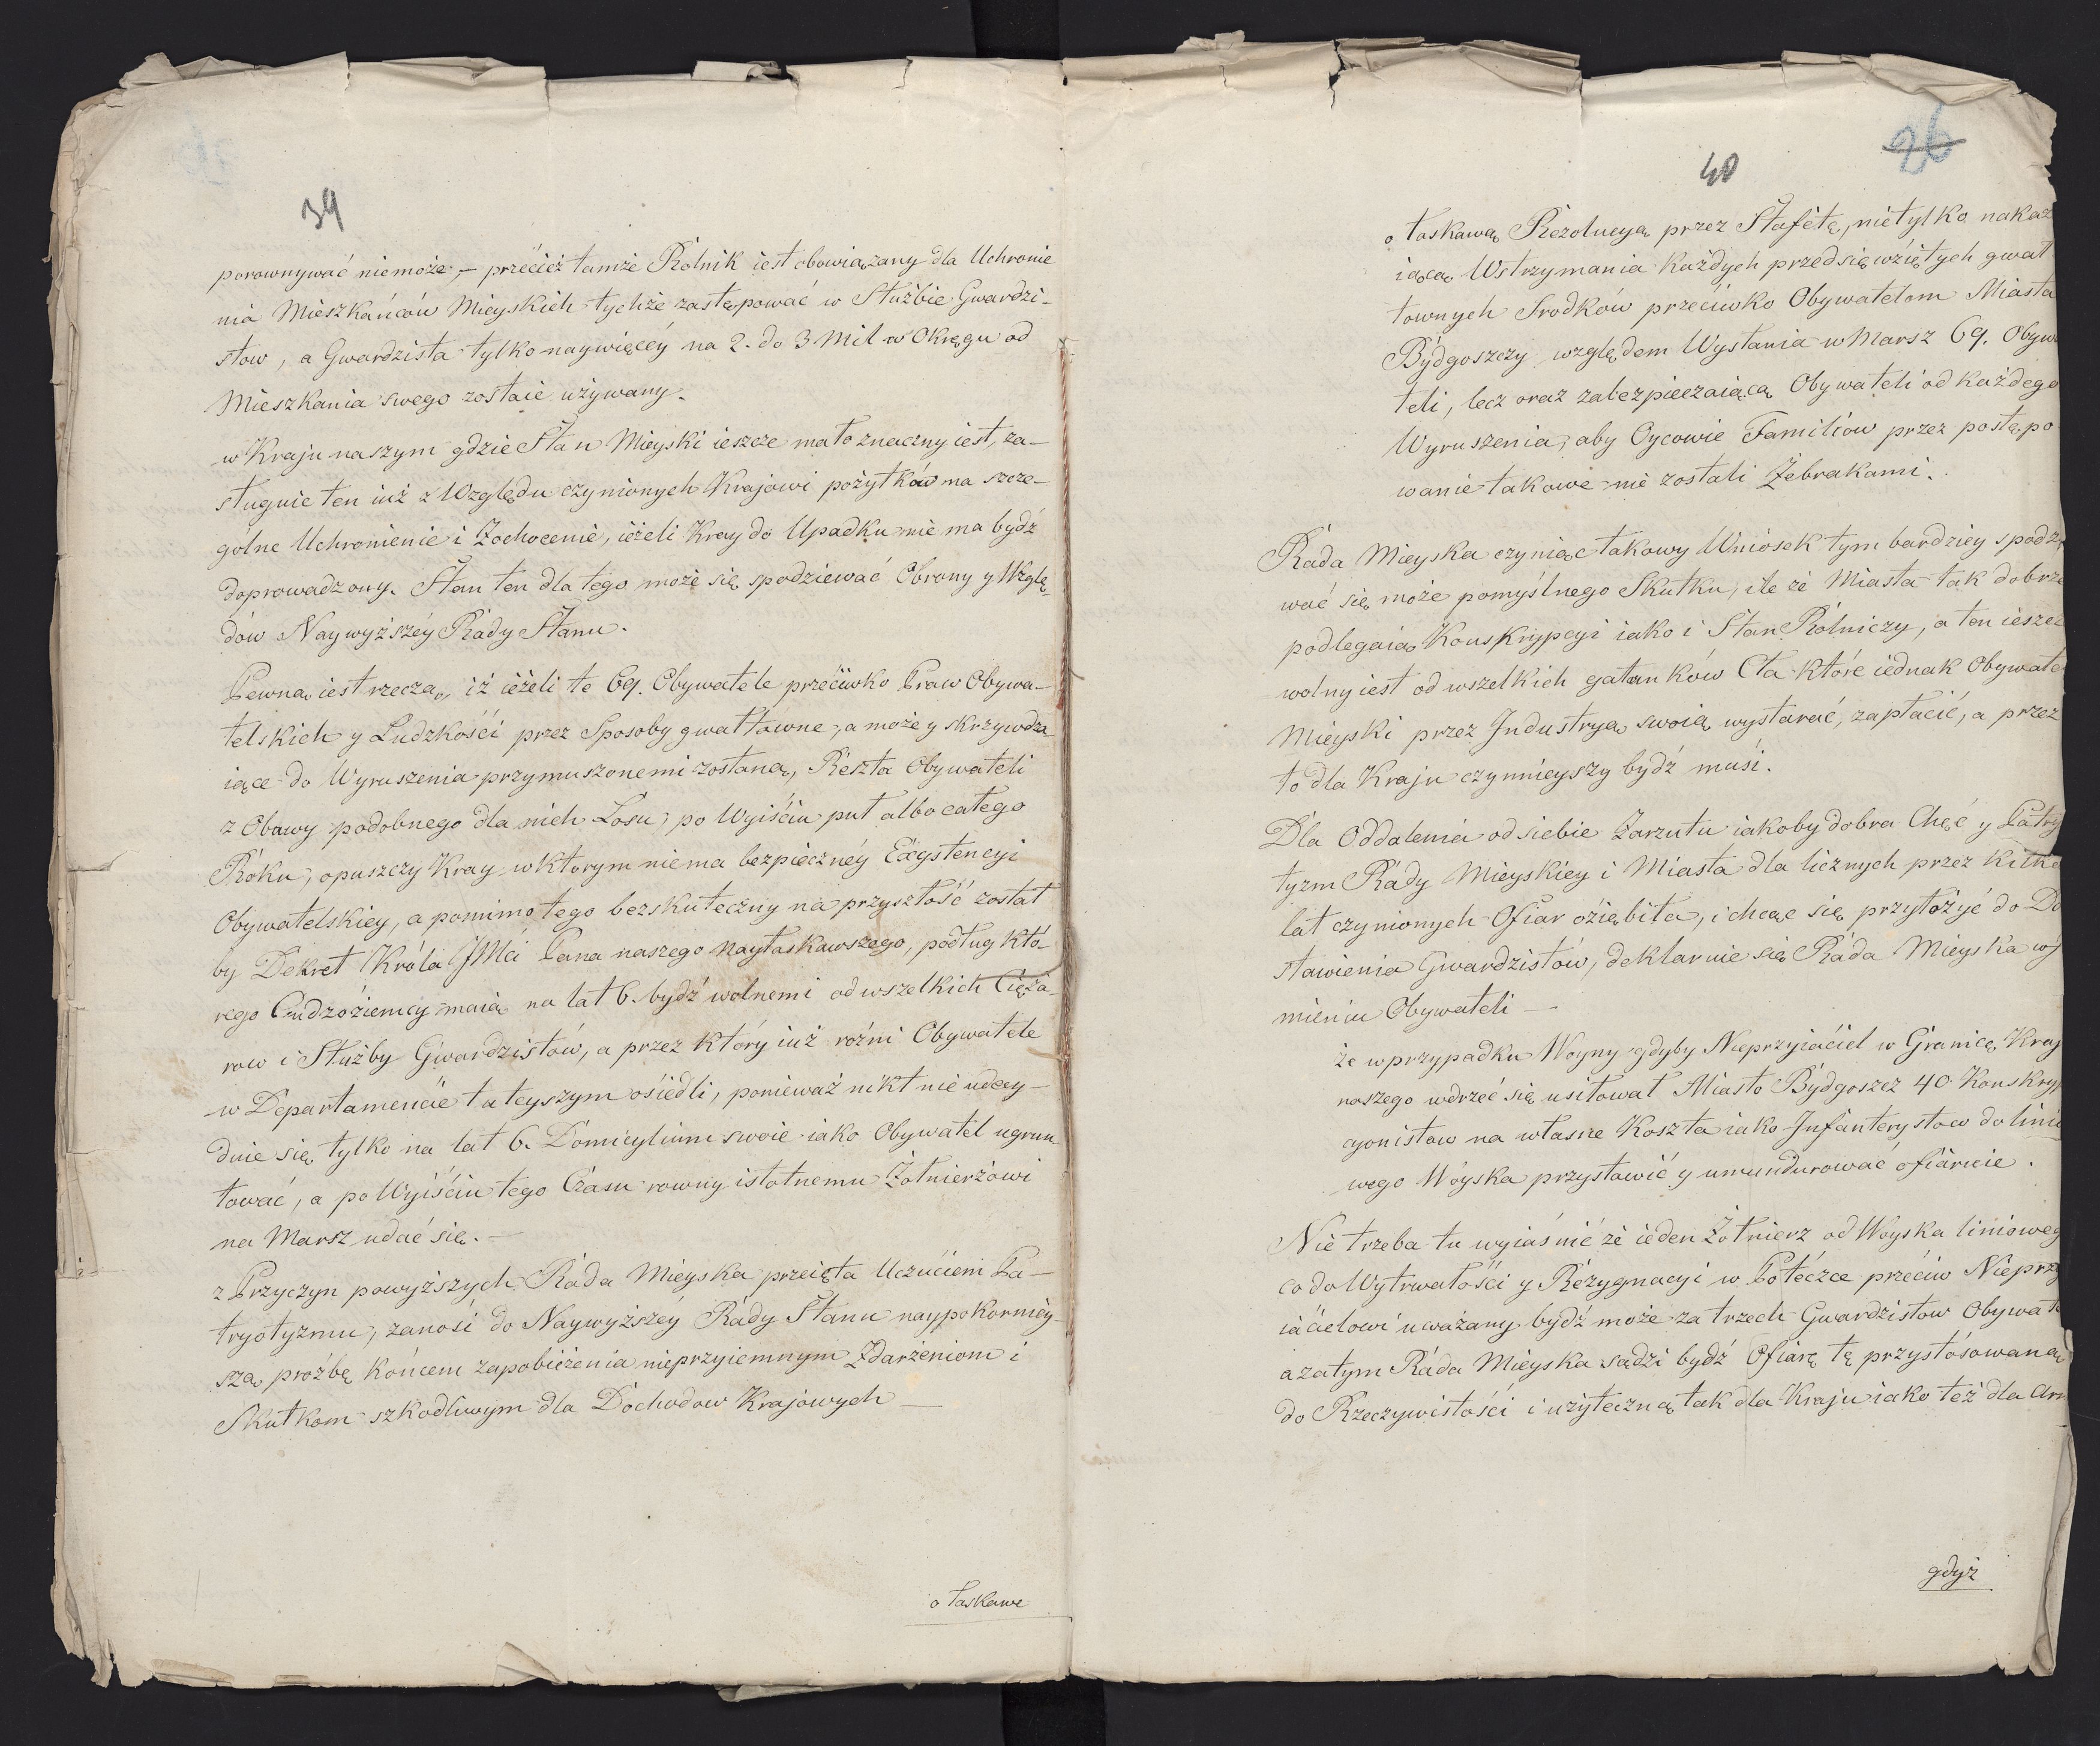 39
porownywać niemoże, – przécież tamże Rólnik iest obowiązany dla Uchronie
nia Mieszkańców Mieyskich tychże zastępować w Służbie Gwardzi-
stow, a Gwardzista tylko naywięcéy na 2. do 3 Mil w Okręgu od
Mieszkania swego zostaie używany.
w Kraju naszym gdzie Stan Mieyski ieszcze mało znaczny iest, za-
sługuie ten iuż z Względu czynionych Krajowi pożytków na szcze-
gólne Uchronienie i Zochocenie, ieżeli Kray do Upadku nie ma bydź
doprowadzony. Stan ten dla tego może się spodziewać Obrony y Wzglę-
dów Naywyższéy Rády Stanu.
Pewną iest rzeczą, iż ieżeli te 69. Obywatele przéciwko Praw Obywa-
telskich y Ludzkości przez Sposoby gwałtówne, a może y skrzywdza
iące do Wyruszenia przymuszonemi zostaną, Reszta Obywateli
z Obawy podobnego dla nich Losu, po Wyiściu puł albo całego
Roku, opuszczy Kray w którym niema bezpiecznéy Exystencyi
Obywatelskiey, a pomimo tego bezskuteczny na przyszłość został
by Dekret Króla JMci Pana naszego Nayłaskawszego, podług któ-
rego Cudzoźiemcy maią na lat 6. bydź wolnemi od wszelkich Cięża-
row i Służby Gwardzistów, a przez który iuż rożni Obywatele
w Departamencie tuteyszym osiedli, ponieważ nikt nie udecy-
duie się tylko na lat 6. Domicylium swoie iako Obywatel ugrun
tować, a po Wyiściu tego Czasu rowny istotnemu Żołnierzowi
na Marsz udać się. –
z Przyczyn powyższych Ráda Mieyska przeięta Uczuciem Pa-
tryotyzmu, zanosi do Naywyższéy Rády Stanu naypokorniey-
szą prożbę końcem zapobieżenia nieprzyiemnym Zdarzeniom i
Skutkom szkodliwym dla Dochodow Krajowych –
o łaskawe
40
26
o łaskawą Rezolucyą przez Stafetę, nietylko nakaz
iącą Wstrzymania każdych przedsięwziętych gwał
townych Srodków przeciwko Obywatelom Miasta
Bydgoszczy względem Wysłania w Marsz 69. Obywa
teli, lecz oraz zabezpieczaiącą Obywateli od każdego
Wyruszenia, aby Oycowie Familiow przez postępo
wanie takowe nie zostali Żebrakami.
Ráda Mieyska czyniąc takowy Wniosek tym bardziey spodzi
wać się może pomyślnego Skutku, ile że Miasta tak dobrze
podlegaią Konskrypcyi iako i Stan Rólniczy, a ten ieszcz
wolny iest od wszelkich gatunków Cła które iednak Obywatel
Mieyski przez Industryą swoią wystarać, zapłacić, a przez
to dla Kraju czynnieyszy bydź musi.
Dla Oddalenia od siebie Zarzutu iakoby dobra Chęć y Patry
tyzm Rády Mieyskiey i Miasta dla licznych przez kilka
lat czynionych Ofiar oźiębiła, i chcąc się przyłożyć do Do
stawienia Gwardzistów, deklaruie się Ráda Mieyska w J
mieniu Obywateli –
że w przypadku Woyny gdyby Nieprzyiáciel w Granicę Kray
naszego wdrzeć się usiłował Miasto Bydgoszcz 40 Konskryp
cyonistow na własne Koszta iako Infanterystow do linio
wego Woyska przystawić y umundurować ofiaruie.
Nie trzeba tu wyiaśnić że ieden Żołnierz od Woyska linioweg
co do Wytrwałości y Rezygnacyi w Potéczce przéciw Nieprzy
iacielowi uważany bydź może za trzech Gwardzistow Obywat
a zatym Ráda Mieyska sądzi bydź Ofiarę tę przystósowaną
do Rzeczywistości i użyteczną tak dla Kraju iako też dla Arm
gdyż